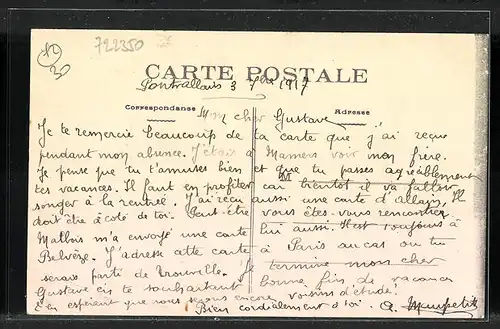 722350
CARTE POSTALE
Pontvallain 3 7bre 1917
Correspondance
Adresse
Mon cher Gustave
Je te remercie beaucoup de la carte que j'ai reçu
pendant mon absence. J'étais à Mamers voir mon frère.
Je pense que tu t'amuses bien et que tu passes agréablement
tes vacances. Il faut en profiter car bientôt il va falloir
songer à la rentrée. J'ai reçu aussi une carte d'Allais, Il
doit être à côté de toi. Peut-être vous êtes-vous rencontrés
M Mathois m'a envoyé une carte lui aussi. Il est toujours à
Belvèze. J'adresse cette carte à Paris au cas ou tu
serais parti de Trouville. Je termine mon cher
Gustave en te souhaitant bonne fin de vacances
En espérant que nous serons encore voisins d'étude!
Bien cordialement à toi.